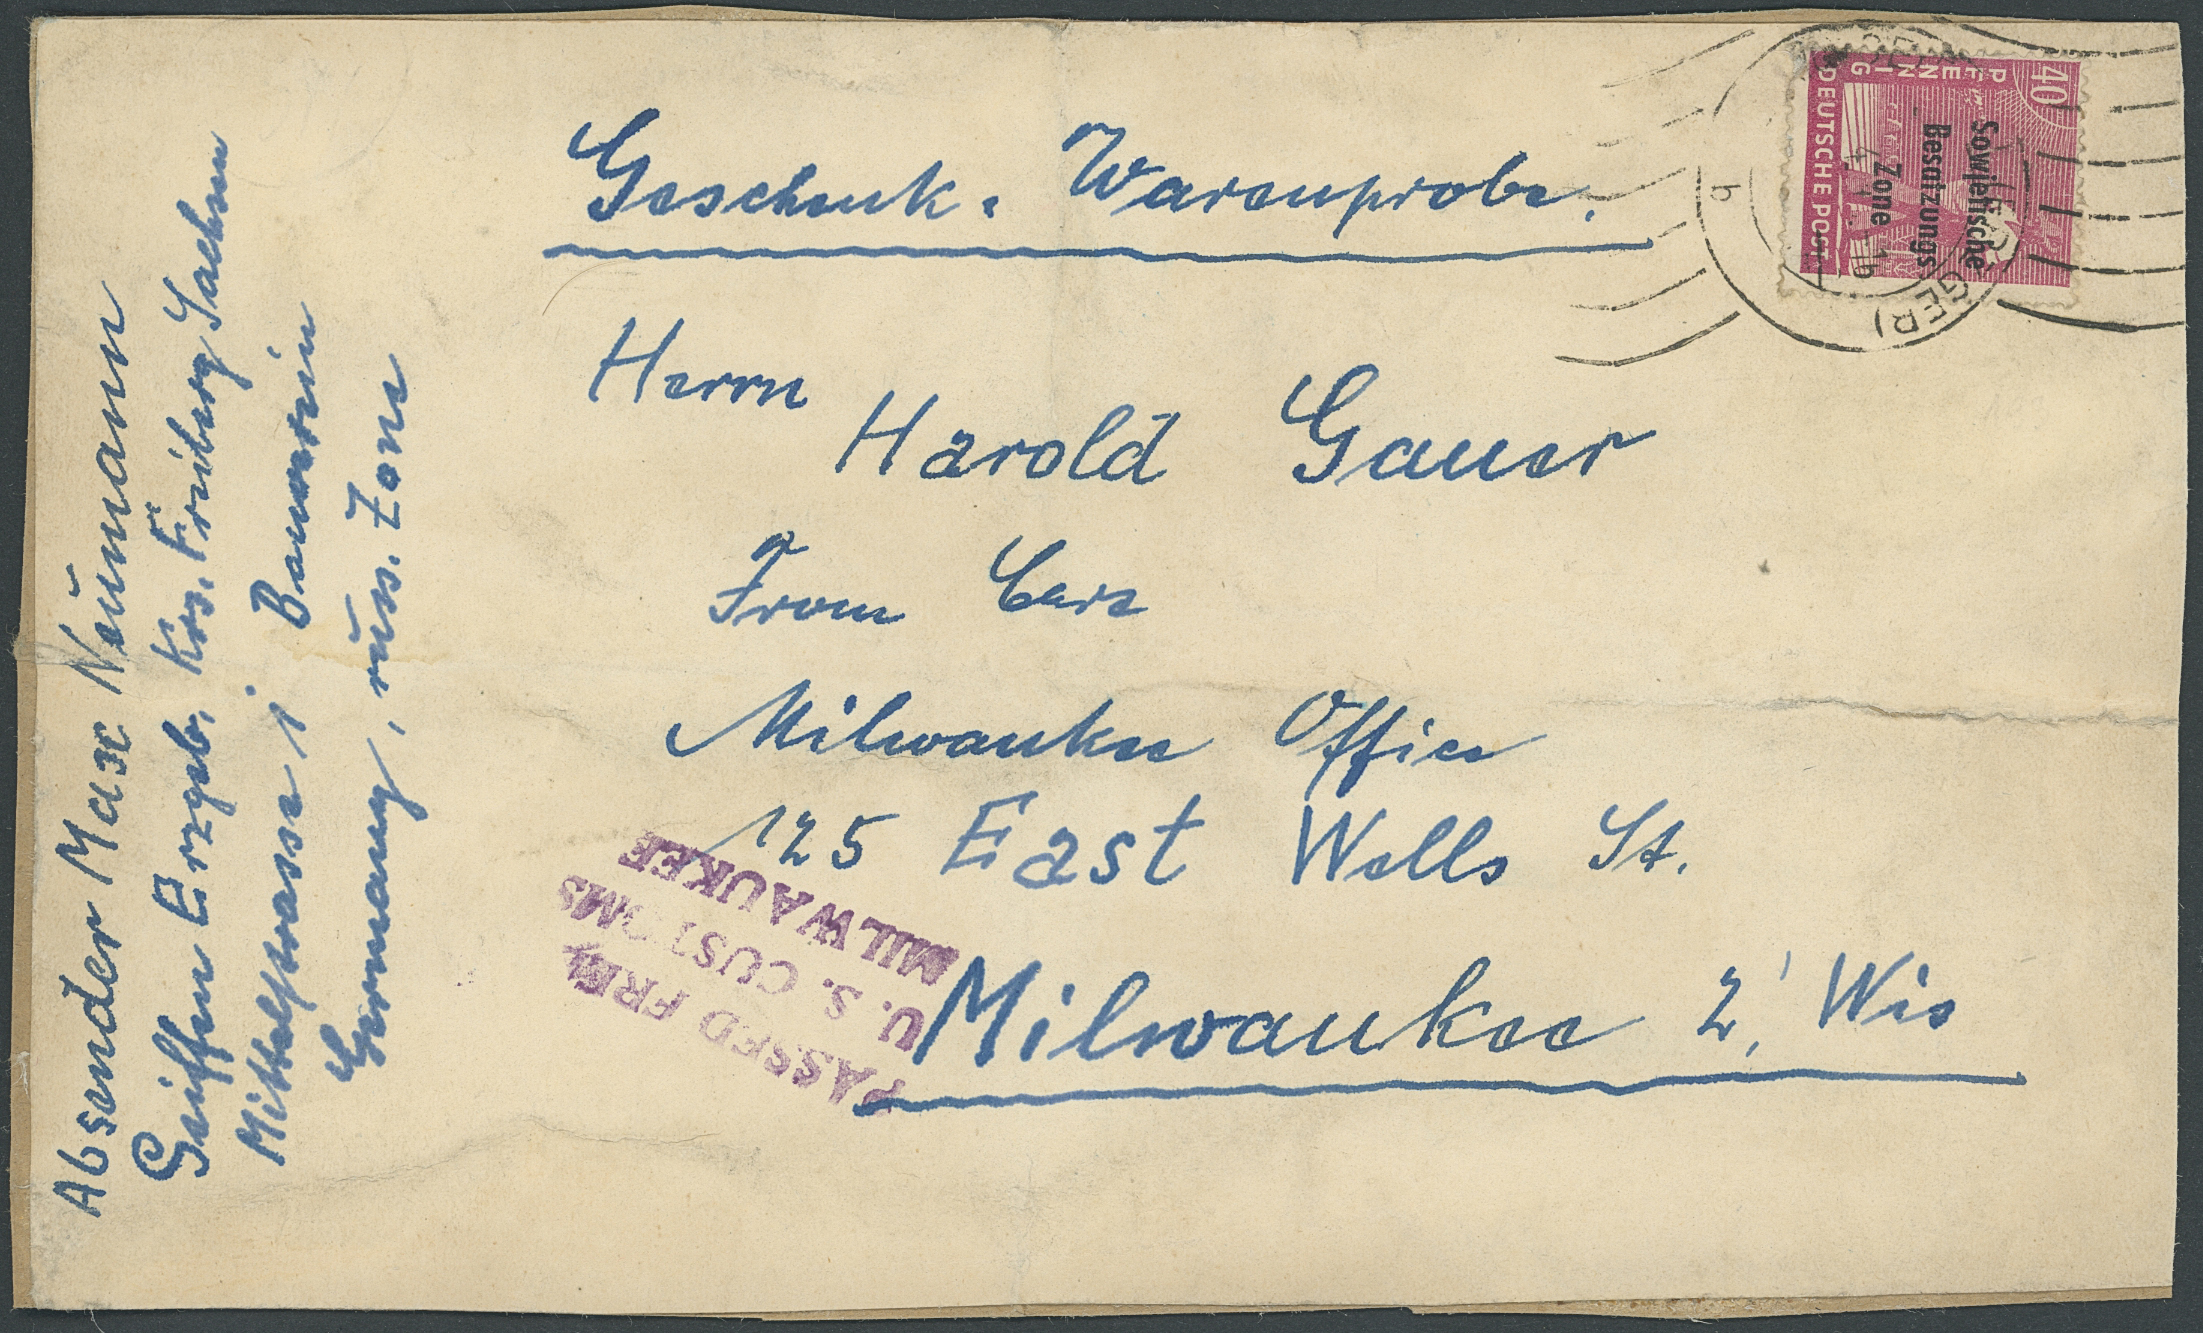 Geschenk. Warenprobe.
Herrn
Harold Gauer
From Care
Milwaukee Office
125 East Wells St.
Milwaukee 2, Wis
Absender Max Neumann
Seiffen Erzgeb. Krs. Freiberg Sachsen
Mittelstrasse j
Germany, russ. Zone
PASSED FREE
U. S. CUSTOMS
MILWAUKEE
40
PFENNIG
DEUTSCHE POST
Sowjetische
Besatzungs
Zone
b